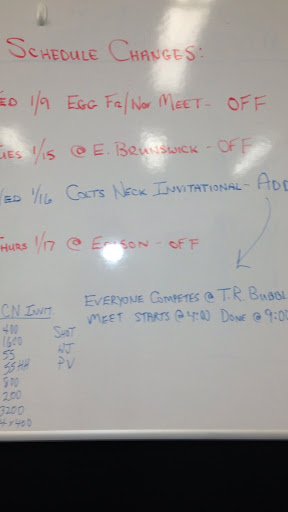 SCHEDULE CHANGES:
ED 1/9 EGG FR/NOV MEET - OFF
UES 1/15 @ E. BRUNSWICK - OFF
WED 1/16 COLTS NECK INVITATIONAL - ADD
HURS 1/17 @ EDISON - OFF
EVERYONE COMPETES @ T.R. BUBBL
MEET STARTS @ 4:00 DONE @ 9:00
CN INVIT.
400
1600
55
55HH
800
200
3200
4x400
SHOT
HJ
PV